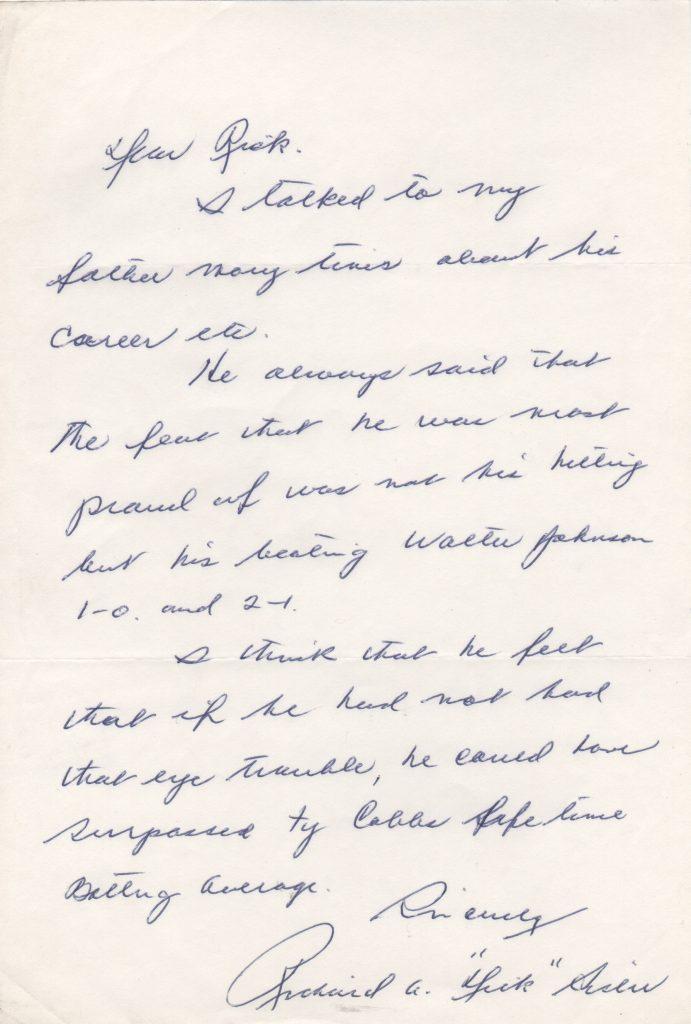 Dear Rick.
I talked to my
father many times about his
career etc.
He always said that
the feat that he was most
proud of was not his hitting
but his beating Walter Johnson
1-0. and 2-1.
I think that he felt
that if he had not had
that eye trouble, he could have
surpassed Ty Cobbs life time
Batting average.
Sincerely
Richard A. "Dick" Sisler